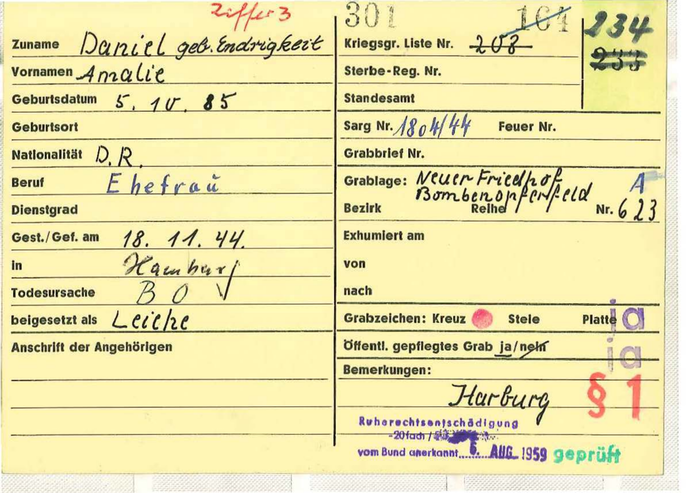 Ziffer 3
301 164 234
Zuname Daniel geb. Endrigkeit
Kriegsgr. Liste Nr. 208 233
Vornamen Amalie
Sterbe-Reg. Nr.
Geburtsdatum 5. 10. 85
Standesamt
Geburtsort
Sarg Nr. 1804/44 Feuer Nr.
Nationalität D.R.
Grabbrief Nr.
Beruf Ehefrau
Grablage: Neuer Friedhof A
Bombenopferfeld
Dienstgrad
Bezirk Reihe Nr. 623
Gest./Gef. am 18. 11. 44.
Exhumiert am
in Hamburg
von
Todesursache BO
nach
beigesetzt als Leiche
Grabzeichen: Kreuz Stele Platte ja
Anschrift der Angehörigen
Öffentl. gepflegtes Grab ja/nein ja
Bemerkungen:
Harburg § 1
Ruherechtsentschädigung
-20fach /
vom Bund anerkannt 6. AUG. 1959 geprüft